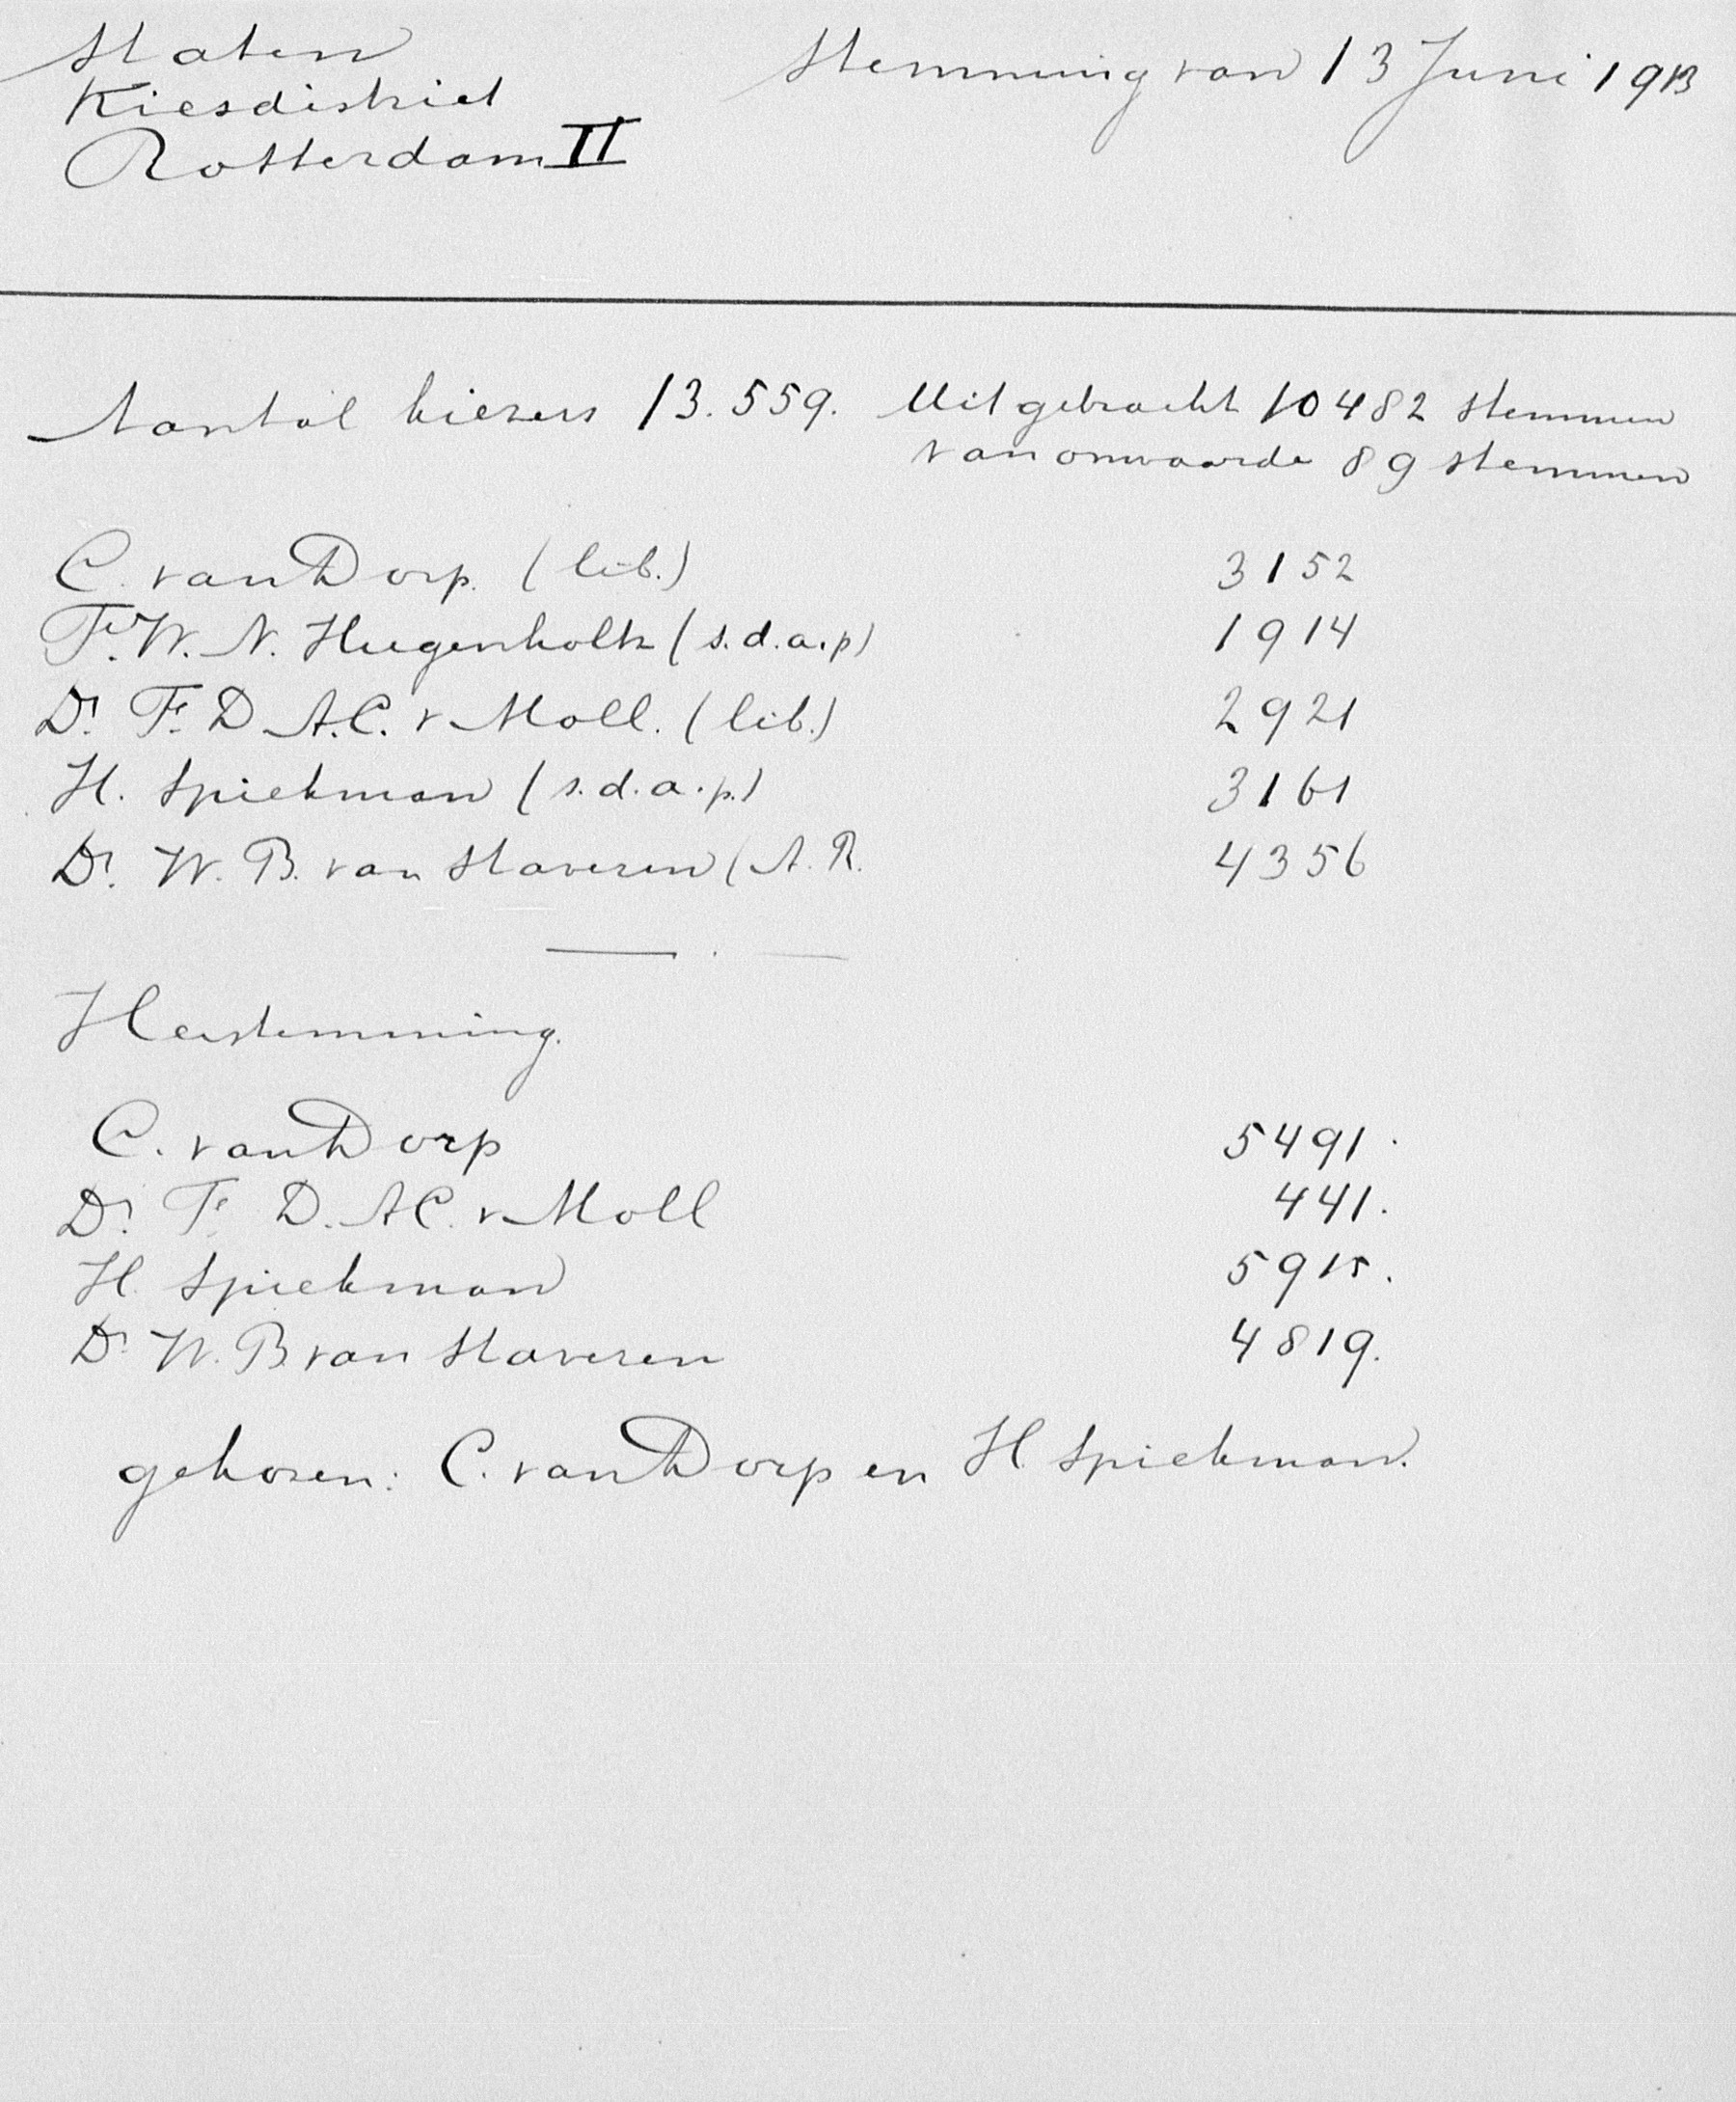 Staten
Kiesdistrict
Rotterdam II
Stemming van 13 Juni 1913
Aantal kiezers 13.559. Uitgebracht 10482 stemmen
van onwaarde 89 stemmen
C. van Dorp. (lib.) 3152
F. W. N. Hugenholtz (s.d.a.p) 1914
Dr. F. D. A. C. v Moll. (lib.) 2921
H. Spiekman (s.d.a.p.) 3161
Dr. W. B. van Staveren (A. R. 4356
Herstemming.
C. van Dorp 5491.
Dr. F. D. A C. v Moll 441.
H. Spiekman 5915.
Dr W. B. van Staveren 4819.
gekozen: C. van Dorp en H. Spiekman.